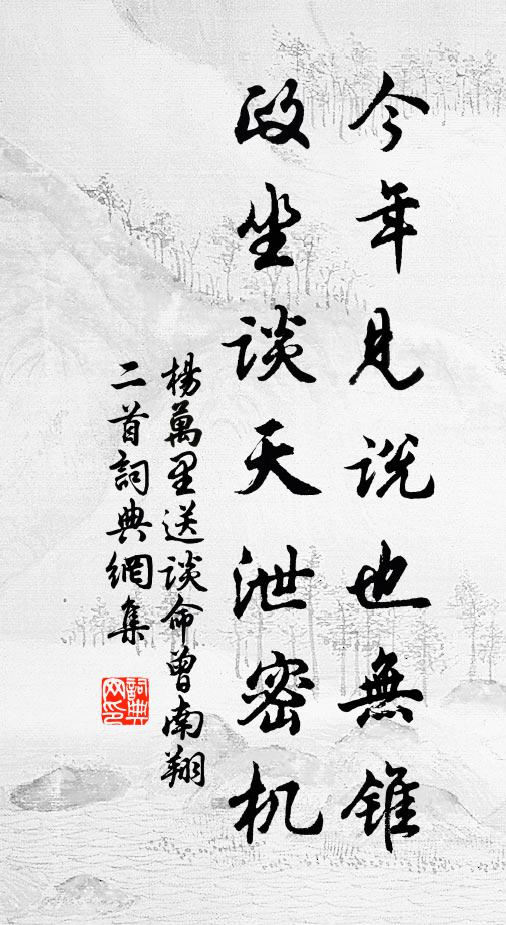 今年見説也無錐
政坐談天泄密机
楊萬里送談命曾南翔
二首詞典網集
詞典
网印